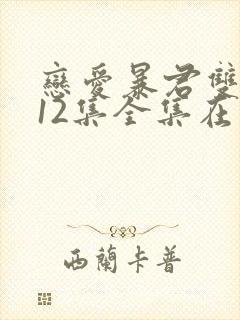 戀愛暴君雙
12集全集在
西蘭卡普